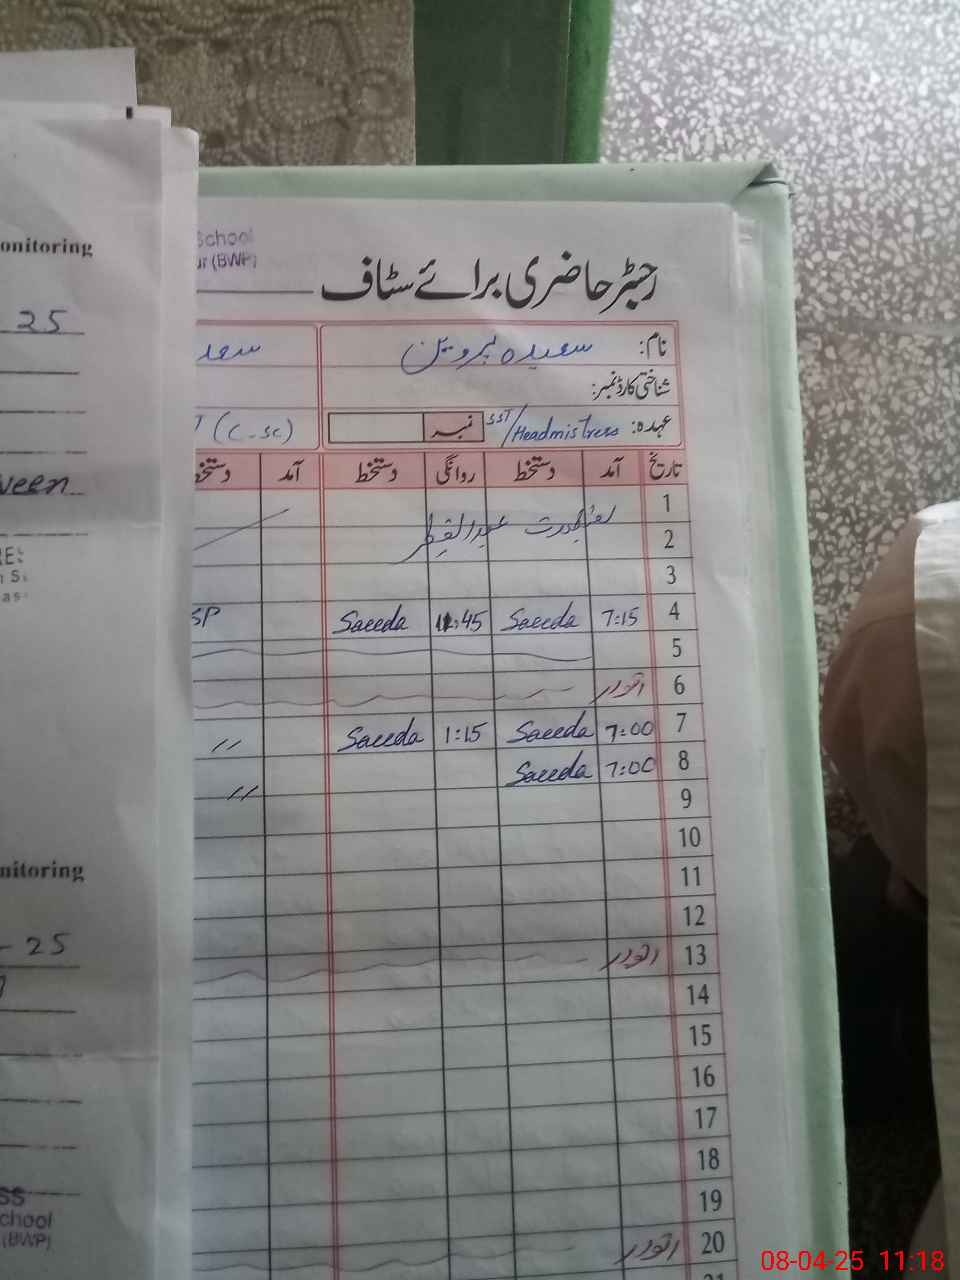 onitoring
25
veen
nitoring
- 25
SS
chool
(BWP)
School
ur (BWP)
رجسٹر حاضری برائے سٹاف
نام: سعیدہ پروین
شناختی کارڈ نمبر:
عہدہ: SST/Headmistress نمبر
(C-SC)
تاریخ آمد دستخط روانگی دستخط آمد دستخط
1
2 عیدالفطر
3
4 7:15 Saeeda 11:45 Saeeda SP
5
6 اتوار
7 7:00 Saeeda 1:15 Saeeda 〃
8 7:00 Saeeda 〃
9
10
11
12
13 اتوار
14
15
16
17
18
19
20 اتوار
21
08-04-25 11:18